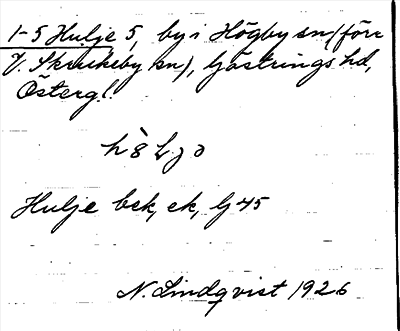 1-5 Hulje 5, by i Högby sn (förr
V. Skrukeby sn), Göstrings hd,
Österg l.
Hulje bsk, ek, Gj 45
N. Lindqvist 1926